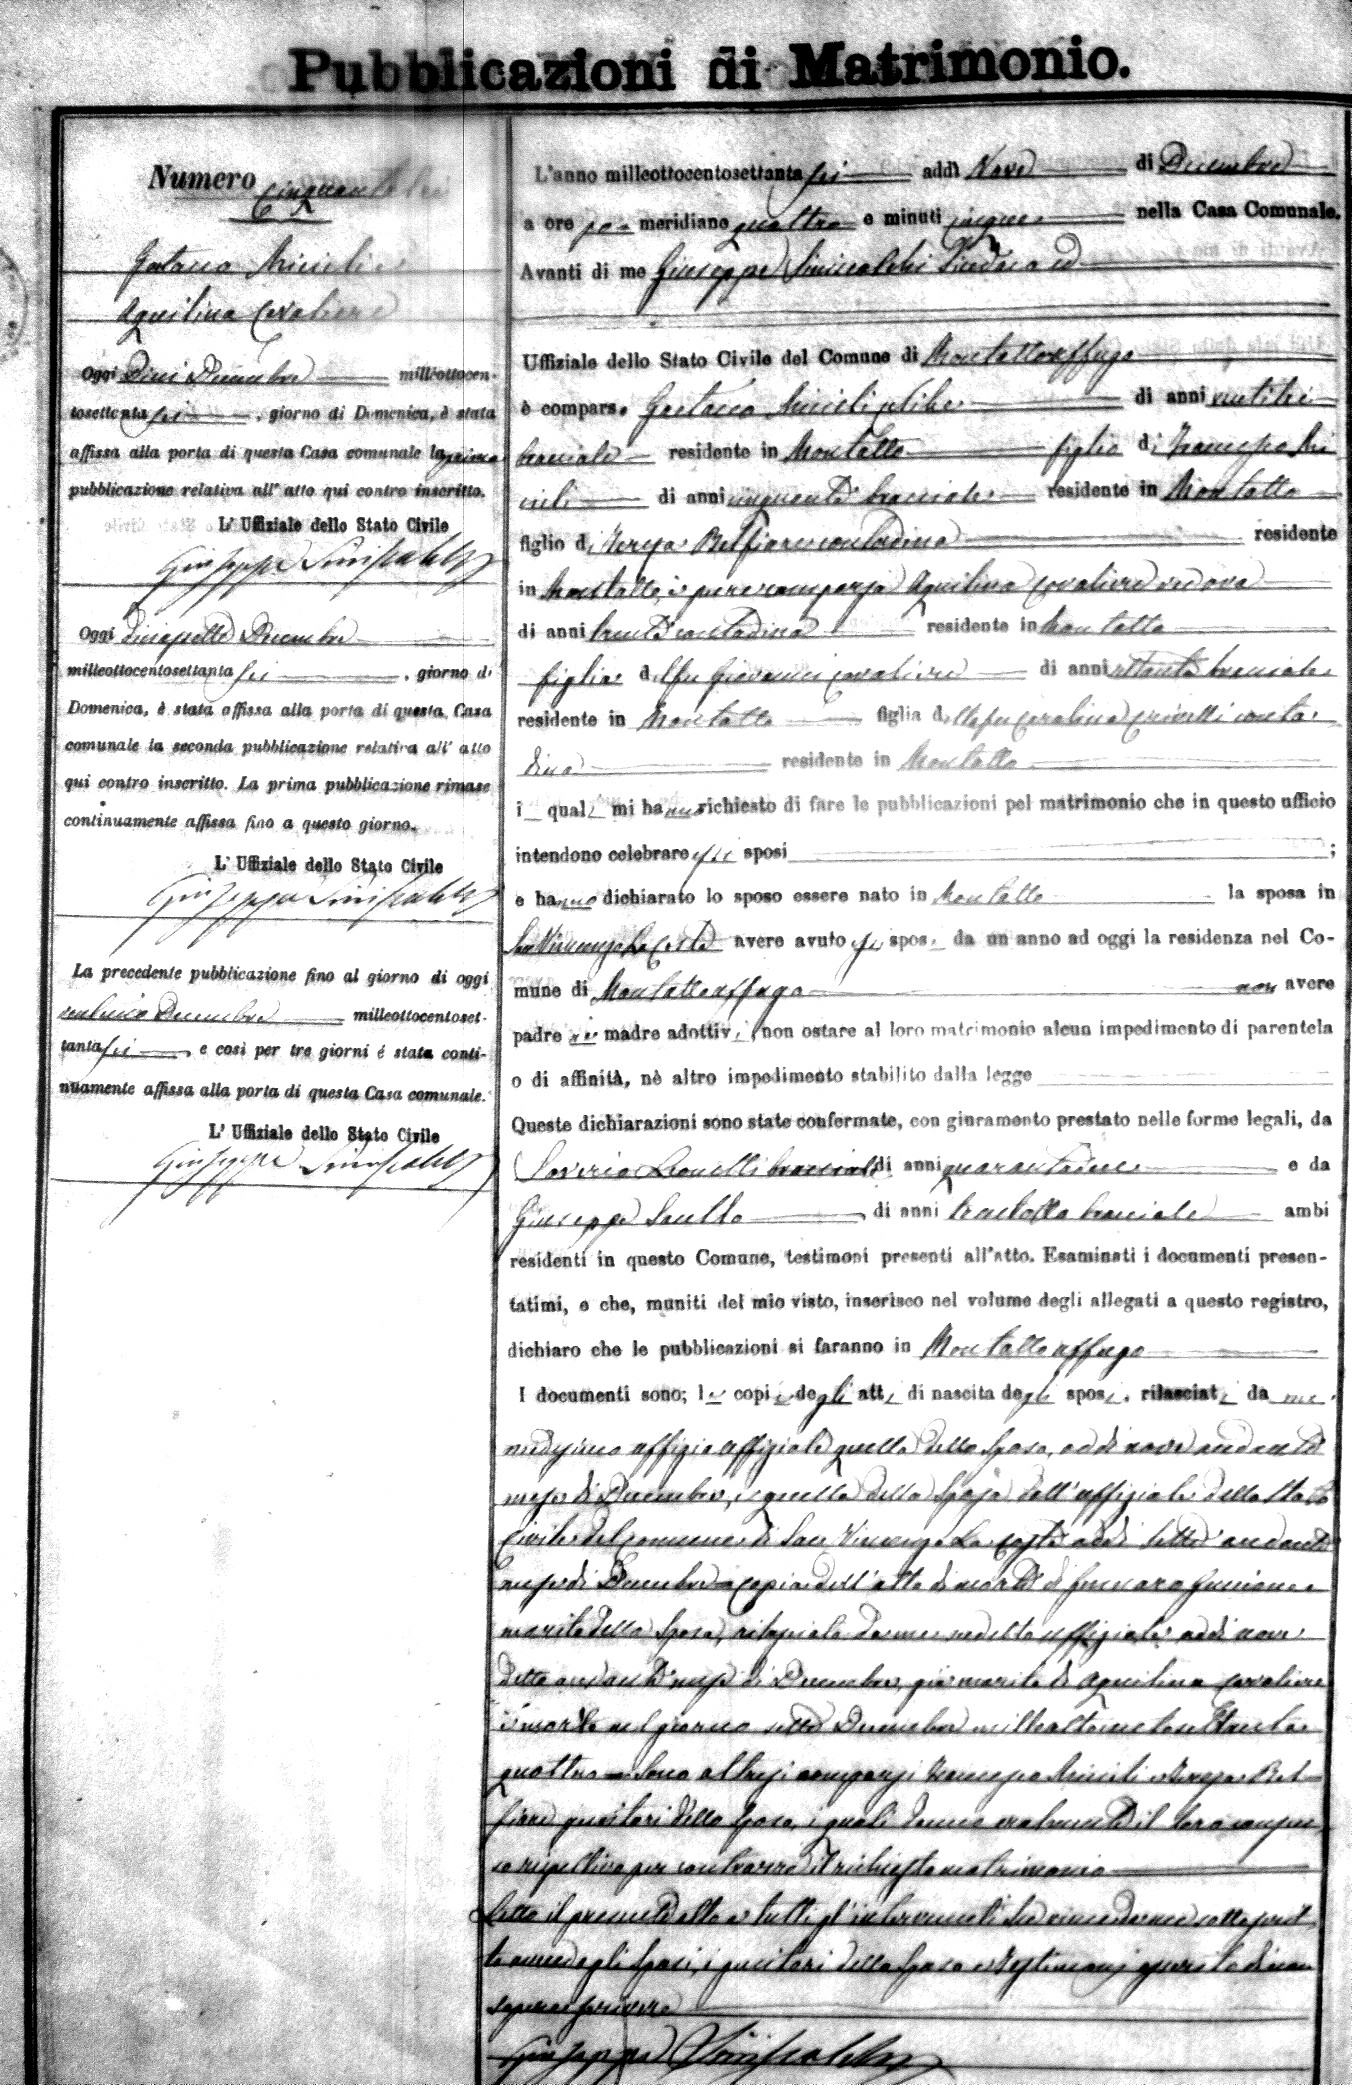 Pubblicazioni di Matrimonio.
Numero Cinquanta
Gaetano
Aquilina Cavaliere
Oggi Dieci Decembre milleottocen-
tosettanta sei, giorno di Domenica, è stata
affissa alla porta di questa Casa comunale la prima
pubblicazione relativa all' atto qui contro inscritto.
L' Uffiziale dello Stato Civile
Giuseppe Siniscalchi
Oggi diciassette Decembre
milleottocentosettanta sei, giorno di
Domenica, è stata affissa alla porta di questa Casa
comunale la seconda pubblicazione relativa all' atto
qui contro inscritto. La prima pubblicazione rimase
continuamente affissa fino a questo giorno.
L' Uffiziale dello Stato Civile
Giuseppe Siniscalchi
La precedente pubblicazione fino al giorno di oggi
Decembre milleottocentoset-
tanta sei, e così per tre giorni é stata conti-
nuamente affissa alla porta di questa Casa comunale.
L' Uffiziale dello Stato Civile
Giuseppe Siniscalchi
L'anno milleottocentosettanta sei addì Nove di Decembre
a ore pom meridiane quattro e minuti cinque nella Casa Comunale.
Avanti di me Giuseppe Siniscalchi Sindaco ed
Uffiziale dello Stato Civile del Comune di Montaltouffugo
è compars. Gaetano celibe di anni ventitre
bracciale residente in Montalto figlio di Francesco
di anni cinquanta bracciale residente in Montalto
figlio di Teresa Belfiore contadina residente
in Montalto, è pure comparsa Aquilina Cavaliere vedova
di anni trenta contadina residente in Montalto
figlia del fu Giovanni Cavaliere di anni ottanta bracciale
residente in Montalto figlia della fu Carolina Crivelli conta
dina residente in Montalto
i quali mi hanno richiesto di fare le pubblicazioni pel matrimonio che in questo ufficio
intendono celebrare essi sposi ;
e hanno dichiarato lo sposo essere nato in Montalto la sposa in
San Vincenzo La Costa avere avuto gli sposi da un anno ad oggi la residenza nel Co-
mune di Montaltouffugo non avere
padre nè madre adottivi, non ostare al loro matrimonio alcun impedimento di parentela
o di affinità, nè altro impedimento stabilito dalla legge
Queste dichiarazioni sono state confermate, con giuramento prestato nelle forme legali, da
Saverio Leonetti bracciale di anni e da
Giuseppe di anni trentotto bracciale ambi
residenti in questo Comune, testimoni presenti all'atto. Esaminati i documenti presen-
tatimi, e che, muniti del mio visto, inserisco nel volume degli allegati a questo registro,
dichiaro che le pubblicazioni si faranno in Montaltouffugo
I documenti sono; le copie degli atti di nascita degli sposi, rilasciati da me
medesimo uffiziale quella dello sposo, addì nove andante
mese di Decembre, e quella della sposa dall'uffiziale dello Stato
Civile del Comune di San Vincenzo La Costa addì sette andante
mese di Decembre copia dell'atto di morte di
marito della sposa, rilasciata da me uffiziale addì nove
detto andante mese di Decembre, già marito di Aquilina Cavaliere
è morto nel giorno sette Decembre milleottocentosettanta
quattro Sono altresì comparsi Francesco e Teresa Bel
fiore genitori dello sposo, i quali danno verbalmente il loro consen
so rispettivo per contrarre il richiesto matrimonio
Letto il presente atto a tutti gl'intervenuti si è con me solo sottoscrit
to avendo gli sposi, i genitori dello sposo e testimoni asserito di non
sapere scrivere
Giuseppe Siniscalchi